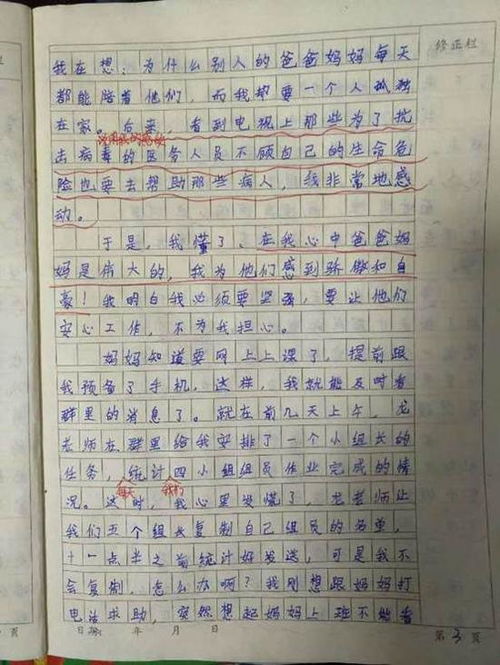 修正栏
我在想：为什么别人的爸爸妈妈每天
都能陪着他们，而我却要一个人孤独
在家。后来，看到电视上那些为了抗
去病毒的医务人员不顾自己的生命危
险也要去帮助那些病人，我非常地感
动。
于是，我懂了，在我心中爸爸妈
妈是伟大的，我为他们感到骄傲和自
豪！我明白我必须要坚强，要让他们
安心工作，不为我担心。
妈妈知道要网上上课了，提前跟
我预备了手机，这样，我就能及时看
群里的消息了。就在前几天上午，龙
老师在群里给我安排了一个小组长的
任务，统计四小组组员作业完成的情
每天 我们
况。这时，我心里发慌了，龙老师让
我们五个组长复制自己组员的名单，
十一点半之前统计好发送，可是我不
会复制，怎么办啊？我刚想跟妈妈打
电话求助，突然想起妈妈上班不能看
日期： 年 月 日 第3页